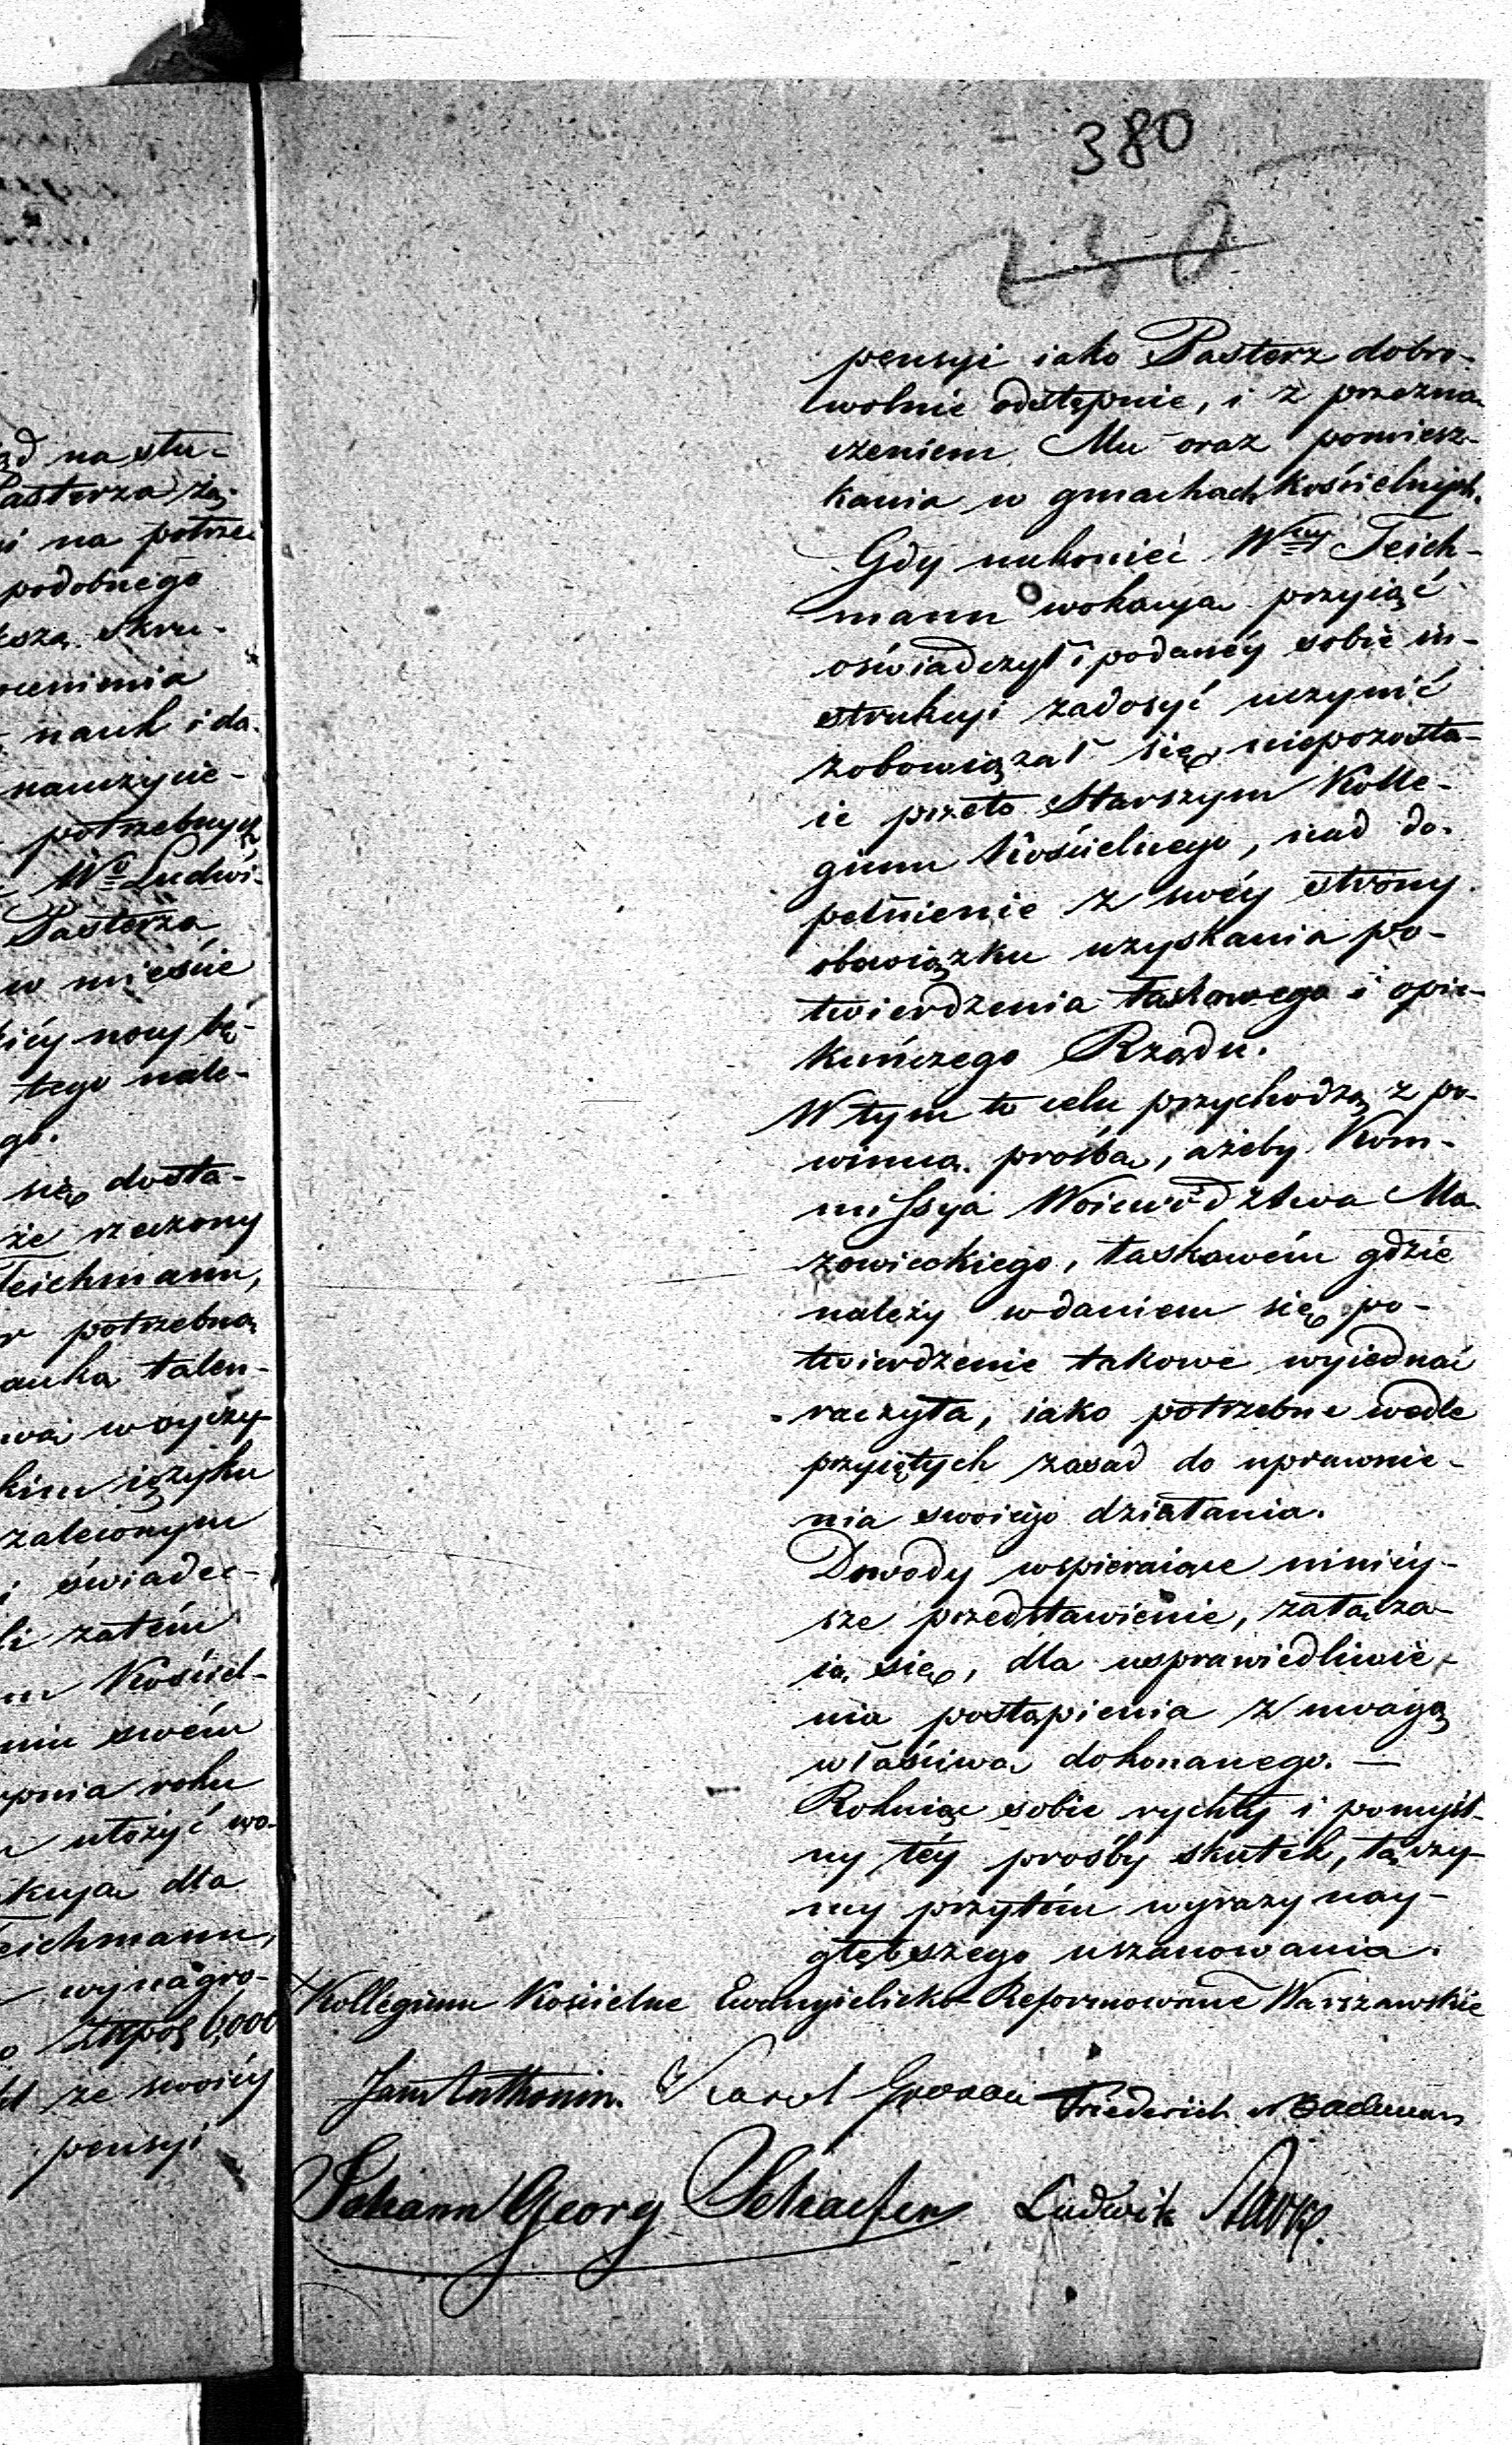 380
230
pensyi iako Pasterz dobro-
wolnie odstępuie, i z przezna-
czeniem Mu oraz pomiesz-
kania w gmachach Kościelnych.
Gdy nakoniec Wny Teich-
mann wokacyą przyiąć
oświadczył i podanéy sobie in-
strukcyi zadosyć uczynić
zobowiązał się, niepozosta-
ie przeto Starszym Kolle-
gium Kościelnego, iak do-
pełnienie z swéy strony
obowiązku uzyskania po-
twierdzenia łaskawego i opie-
kuńczego Rządu.
W tym to celu przychodzą z po-
winną prośbą, ażeby Kom-
missya Woiewództwa Ma-
zowieckiego, łaskawém gdzie
należy wdaniem się po-
twierdzenie takowe wyiednać
raczyła, iako potrzebne wedle
przyiętych zasad do uprawnie-
nia swoiego działania.
Dowody wspieraiące ninięy-
sze przedstawienie, załącza-
ią się, dla usprawiedliwie-
nia postąpienia z uwagą
właściwą dokonanego. —
Rokuiąc sobie rychły i pomyśl-
ny téy prośby skutek, łączy-
my przytém wyrazy nay-
głębszego uszanowania.
Kollegium Kościelne Ewangielicko-Reformowane Warszawskie
Jan Anthonin. Karol Friederich
Johann Georg Schaefer Ludwik
ąd na stu-
Pasterza zą-
i na potrze-
podobnego
ksza skru-
ocenienia
nauk i da-
nauczycie-
potrzebnych
We Ludwi-
Pasterza
w mieście
kiéy nocy bę-
tego nale-
go.
się dosta-
że rzeczony
Teichmann,
r potrzebną
auką talen-
wa w oyczy-
kim ięzyku
zaleconym
i świadec-
li zatém
m Kościel-
niu swém
rpnia roku
ułożyć wo-
kcyą dla
Teichmann,
wynagro-
Złlpol 6,000
ze swoiéy
pensyi